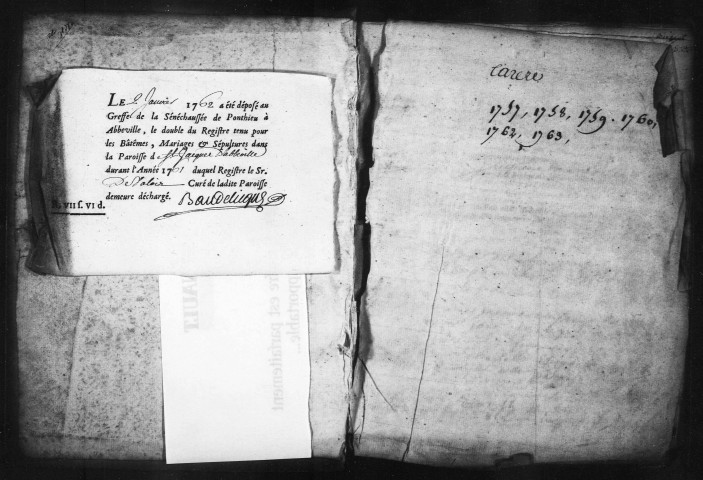 LE 2 Janvier 1762 a été déposé au
Greffe de la Sénéchaussée de Ponthieu à
Abbeville, le double du Registre tenu pour
les Bâtêmes, Mariages & Sépultures dans
la Paroisse d St Jacques d'abbeville
durant l'Année 1761 duquel Registre le Sr.
Curé de ladite Paroisse
demeure déchargé.
VII s. VI d.
1757, 1758, 1759. 1760,
1762, 1763,